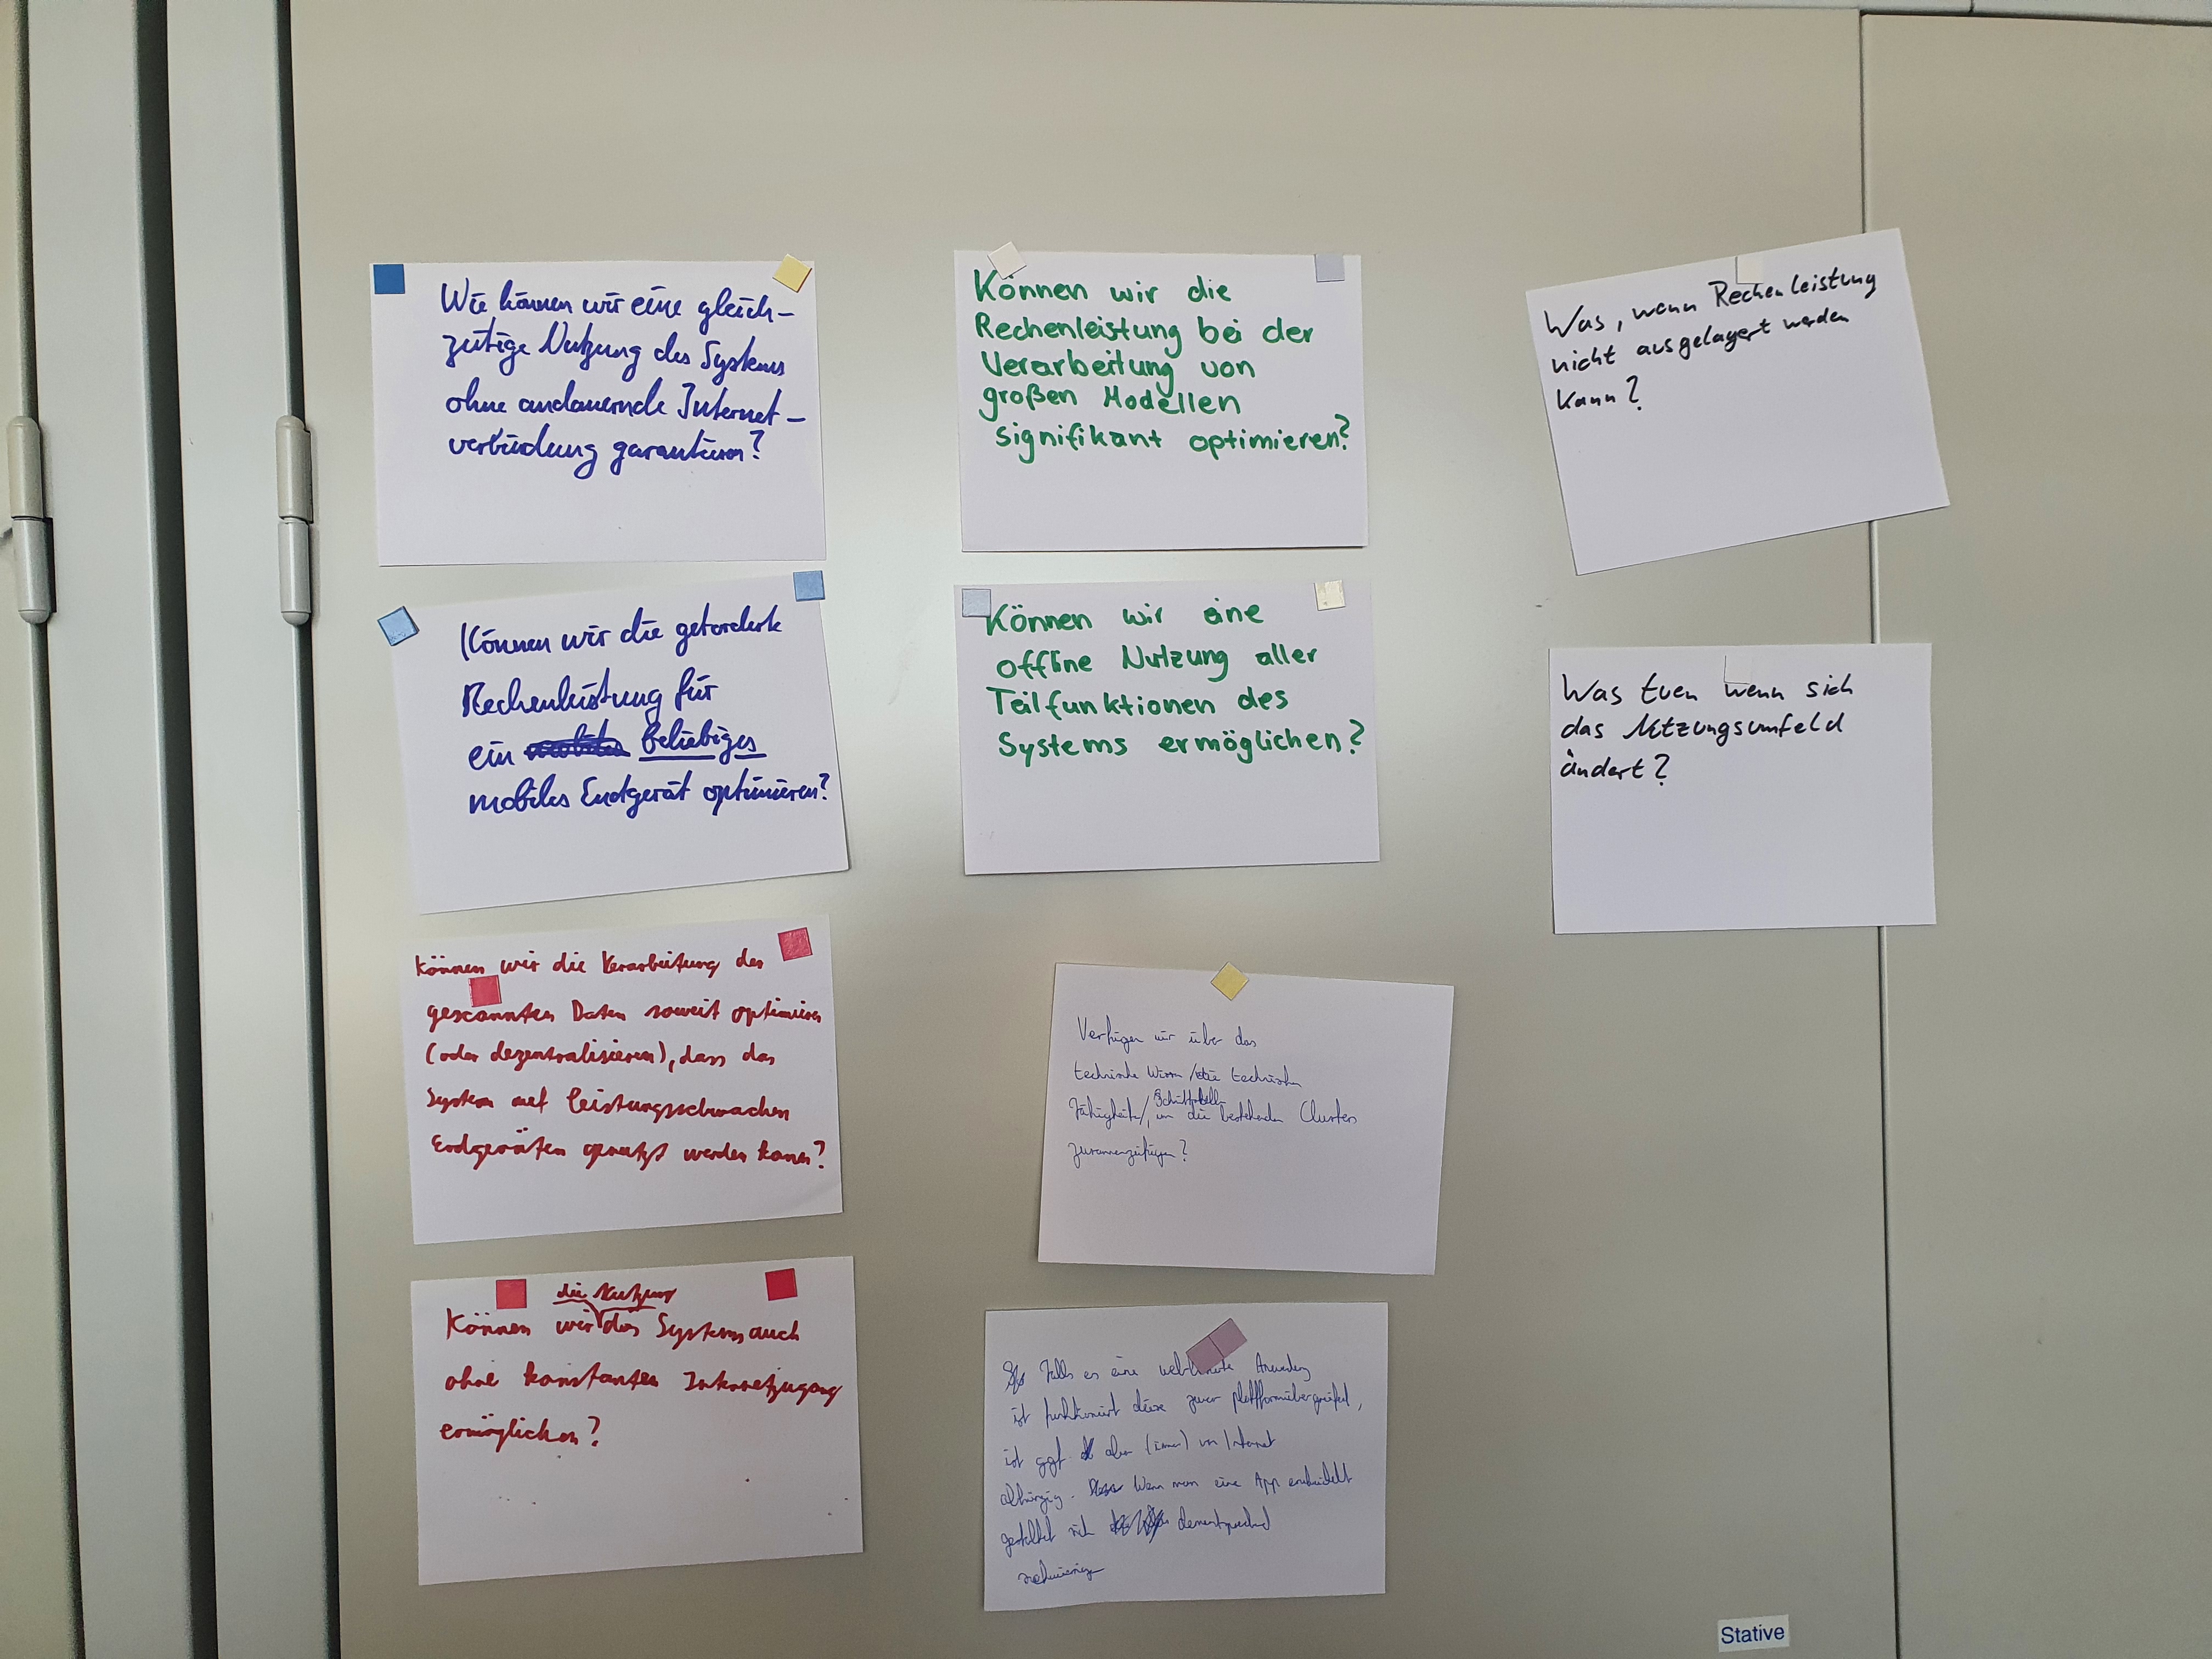 Wie können wir eine gleich-
zeitige Nutzung des Systems
ohne andauernde Internet-
verbindung garantieren?
Können wir die geforderte
Rechenleistung für
ein beliebiges
mobiles Endgerät optimieren?
Können wir die Verarbeitung der
gescannten Daten soweit optimieren
(oder dezentralisieren), dass das
System auf leistungsschwachen
Endgeräten genutzt werden kann?
die Nutzung
Können wir des Systems auch
ohne konstanten Internetzugang
ermöglichen?
Können wir die
Rechenleistung bei der
Verarbeitung von
großen Modellen
signifikant optimieren?
Können wir eine
offline Nutzung aller
Teilfunktionen des
Systems ermöglichen?
Verfügen wir über das
technische Wissen / die technischen
Schnittstellen
Fähigkeiten/, um die bestehenden Cluster
zusammenzufügen?
Falls es eine Anwendung
ist funktioniert diese zwar plattformübergreifend,
ist ggf. aber (immer) von Internet
abhängig. Wenn man eine App entwickelt
gestaltet sich dementsprechend
schwierig
Was, wenn Rechenleistung
nicht ausgelagert werden
kann?
Was tuen wenn sich
das Nutzungsumfeld
ändert?
Stative